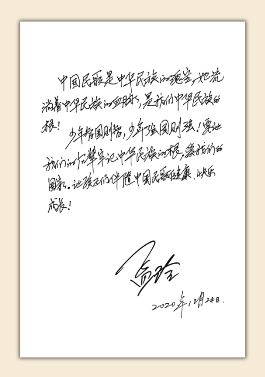 中国民歌是中华民族的瑰宝,她流
淌着中华民族的血脉,是我们中华民族的
根!
少年智国则智,少年强国则强!要让
我们的后辈牢记中华民族的根,爱我们的
国家。让孩子们伴随中国民歌健康、快乐
成长!
2020年12月28日